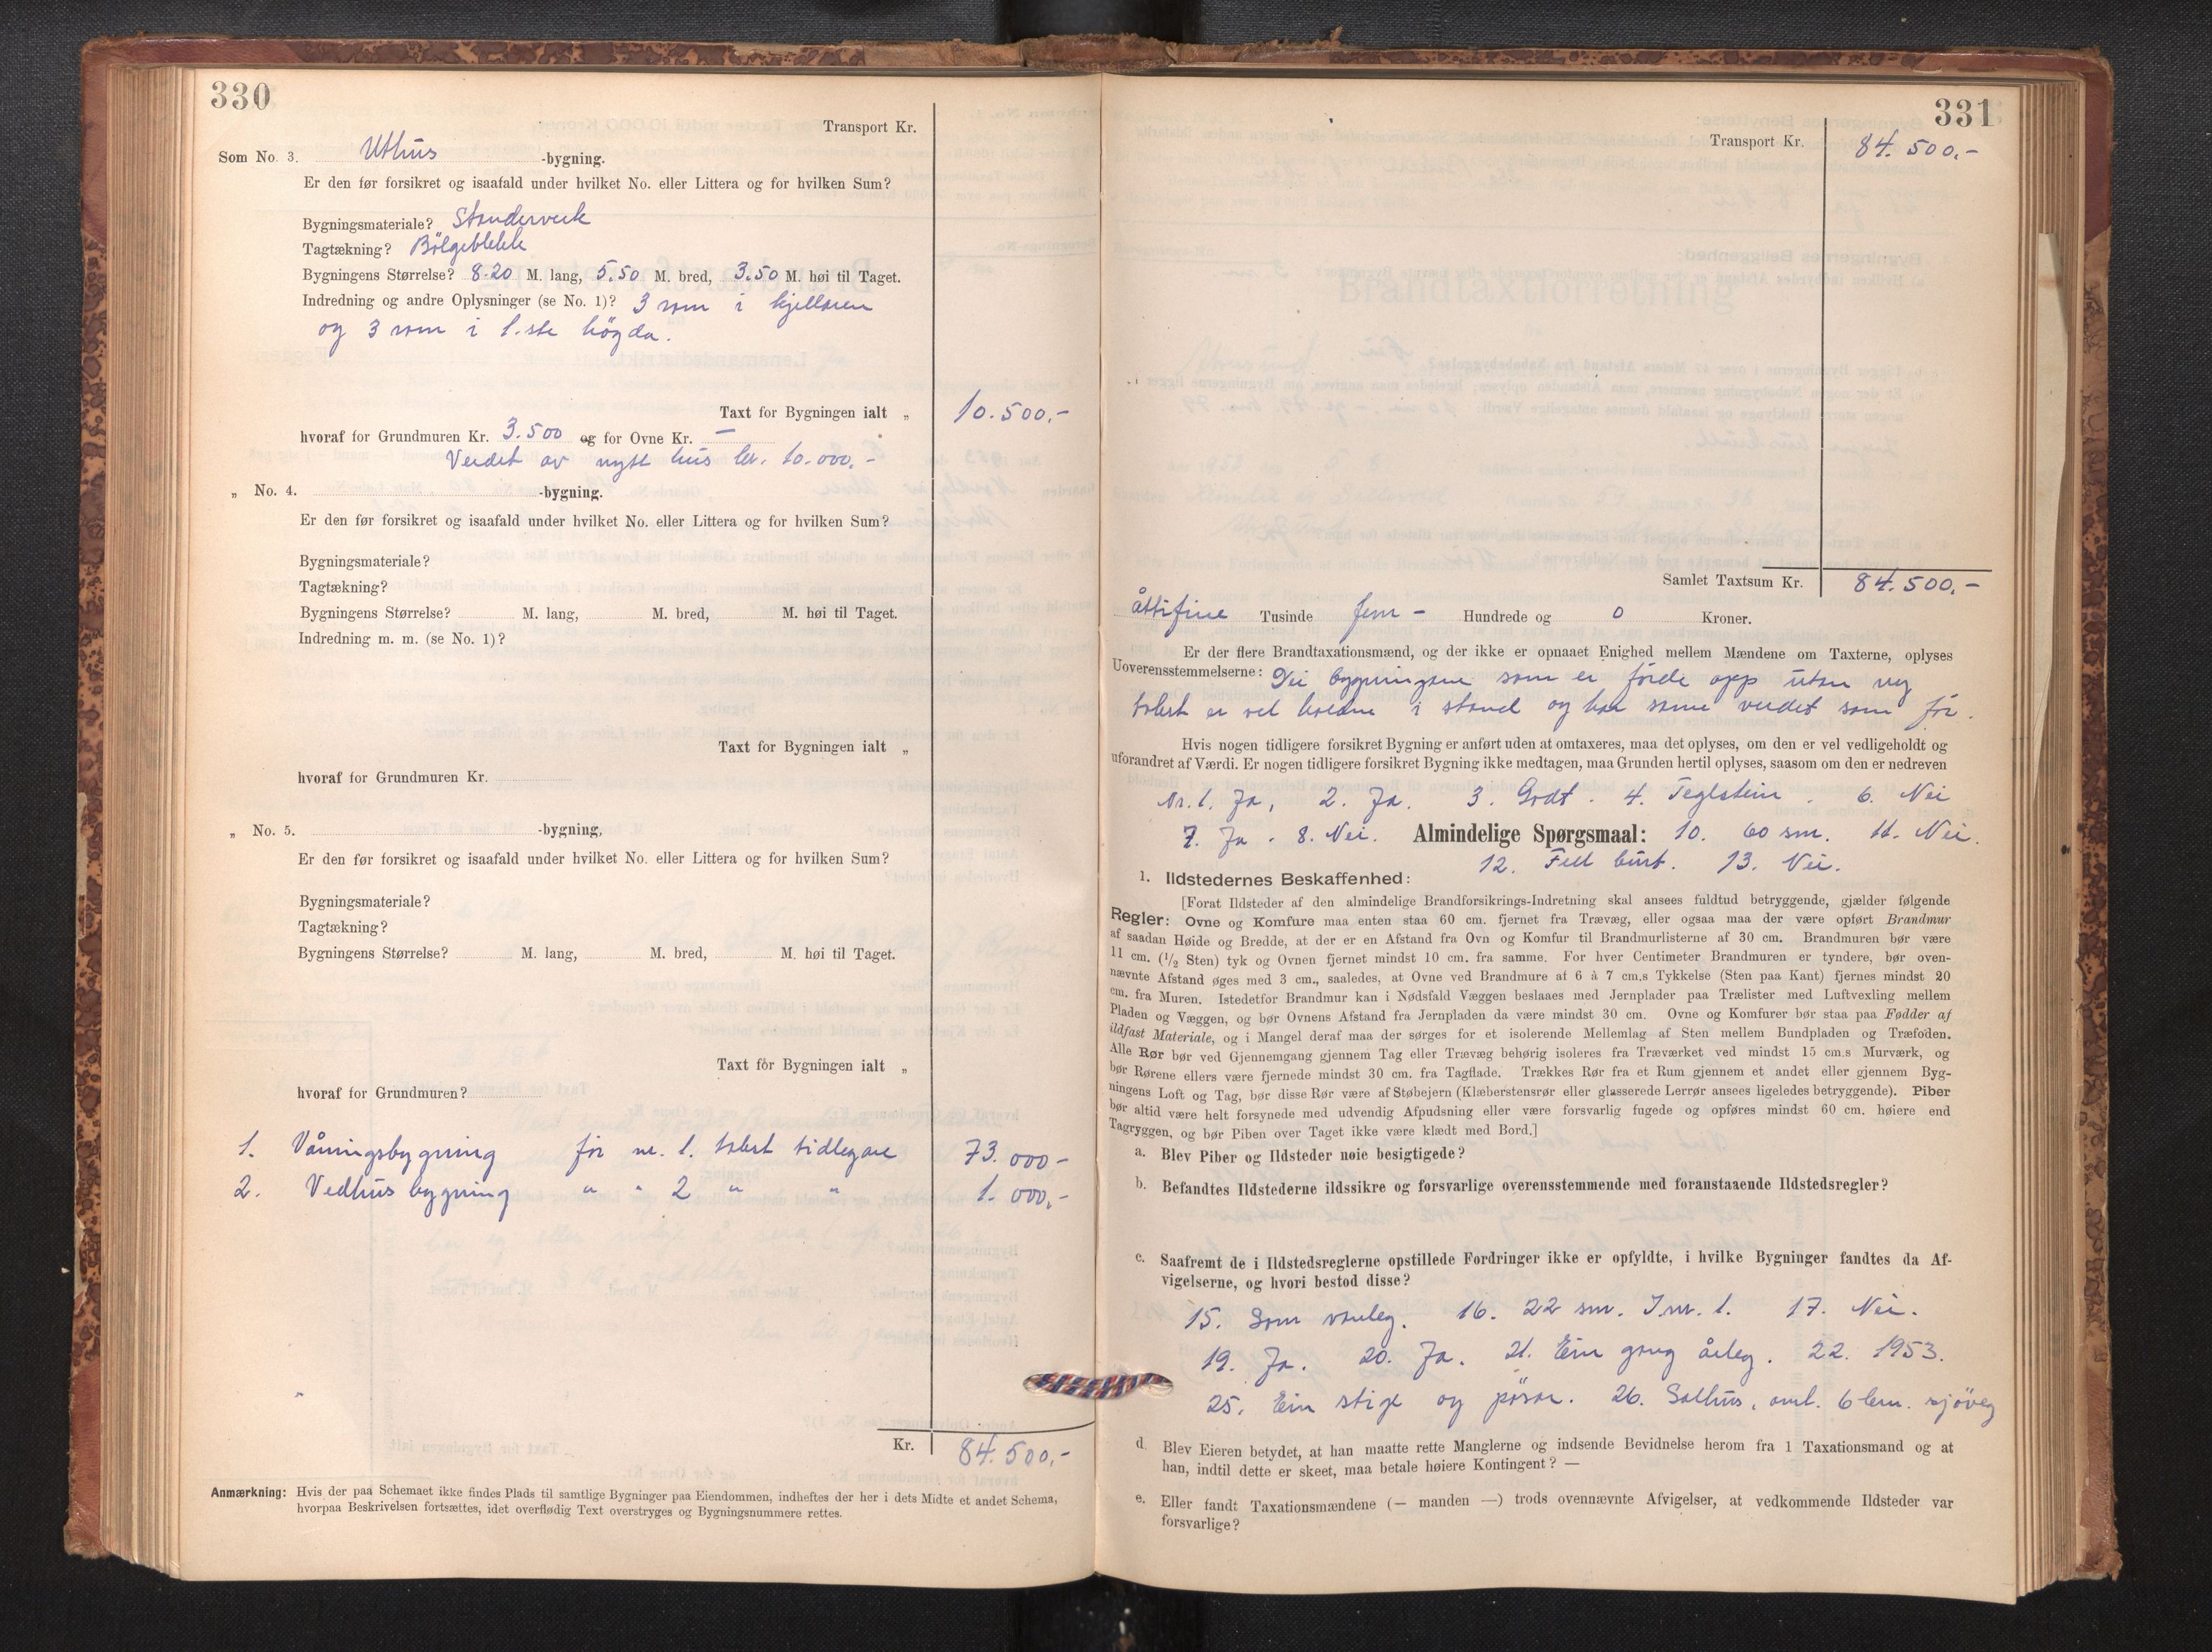 330
Transport Kr.
Som No. 3. Uthus -bygning.
Er den før forsikret og isaafald under hvilket No. eller Littera og for hvilken Sum?
Bygningsmateriale? Stenderverk
Tagtækning? Bölgeblekk
Bygningens Størrelse? 8.20 M. lang, 5.50 M. bred, 3.50 M. høi til Taget.
Indredning og andre Oplysninger (se No. 1)? 3 rom i kjellaren
og 3 rom i 1.ste högda.
Taxt for Bygningen ialt „ 10.500,-
hvoraf for Grundmuren Kr. 3.500 og for Ovne Kr. —
Verdet av nytt hus kr. 10.000,-
„ No. 4. -bygning.
Er den før forsikret og isaafald under hvilket No. eller Littera og for hvilken Sum?
Bygningsmateriale?
Tagtækning?
Bygningens Størrelse? M. lang, M. bred, M. høi til Taget.
Indredning m. m. (se No. 1)?
Taxt for Bygningen ialt „
hvoraf for Grundmuren Kr.
„ No. 5. -bygning,
Er den før forsikret og isaafald under hvilket No. eller Littera og for hvilken Sum?
Bygningsmateriale?
Tagtækning?
Bygningens Størrelse? M. lang, M. bred, M. høi til Taget.
Taxt før Bygningen ialt „
hvoraf for Grundmuren?
1. Våningsbygning för nr. 1. takert tidlegare 73.000-
2. Vedhusbygning " " 2 " " 1.000,-
Kr. 84.500,-
Anmærkning: Hvis der paa Schemaet ikke findes Plads til samtlige Bygninger paa Eiendommen, indheftes der her i dets Midte et andet Schema,
hvorpaa Beskrivelsen fortsættes, idet overflødig Text overstryges og Bygningsnummere rettes.
331
Transport Kr. 84.500,-
Samlet Taxtsum Kr. 84.500,-
åttifire Tusinde fem - Hundrede og 0 Kroner.
Er der flere Brandtaxationsmænd, og der ikke er opnaaet Enighed mellem Mændene om Taxterne, oplyses
Uoverensstemmelserne: Dei bygningane som er förde opp utan ny
takst er vel haldne i stand og har same verdet som för.
Hvis nogen tidligere forsikret Bygning er anført uden at omtaxeres, maa det oplyses, om den er vel vedligeholdt og
uforandret af Værdi. Er nogen tidligere forsikret Bygning ikke medtagen, maa Grunden hertil oplyses, saasom om den er nedreven
Nr. 1. Ja, 2. Ja. 3. Godt. 4. Teglstein. 6. Nei
7. Ja. 8. Nei. Almindelige Spørgsmaal: 10. 60 sm. 11. Nei.
12. Fell burt. 13. Nei.
1. Ildstedernes Beskaffenhed:
[Forat Ildsteder af den almindelige Brandforsikrings-Indretning skal ansees fuldtud betryggende, gjælder følgende
Regler: Ovne og Komfure maa enten staa 60 cm. fjernet fra Trævæg, eller ogsaa maa der være opført Brandmur
af saadan Høide og Bredde, at der er en Afstand fra Ovn og Komfur til Brandmurlisterne af 30 cm. Brandmuren bør være
11 cm. (1/2 Sten) tyk og Ovnen fjernet mindst 10 cm. fra samme. For hver Centimeter Brandmuren er tyndere, bør oven-
nævnte Afstand øges med 3 cm., saaledes, at Ovne ved Brandmure af 6 à 7 cm.s Tykkelse (Sten paa Kant) fjernes mindst 20
cm. fra Muren. Istedetfor Brandmur kan i Nødsfald Væggen beslaaes med Jernplader paa Trælister med Luftvexling mellem
Pladen og Væggen, og bør Ovnens Afstand fra Jernpladen da være mindst 30 cm. Ovne og Komfurer bør staa paa Fødder af
ildfast Materiale, og i Mangel deraf maa der sørges for et isolerende Mellemlag af Sten mellem Bundpladen og Træfoden.
Alle Rør bør ved Gjennemgang gjennem Tag eller Trævæg behørig isoleres fra Træværket ved mindst 15 cm.s Murværk, og
bør Rørene ellers være fjernede mindst 30 cm. fra Tagflade. Trækkes Rør fra et Rum gjennem et andet eller gjennem Byg-
ningens Loft og Tag, bør disse Rør være af Støbejern (Klæberstensrør eller glasserede Lerrør ansees ligeledes betryggende). Piber
bør altid være helt forsynede med udvendig Afpudsning eller være forsvarlig fugede og opføres mindst 60 cm. høiere end
Tagryggen, og bør Piben over Taget ikke være klædt med Bord.]
a. Blev Piber og Ildsteder nøie besigtigede?
b. Befandtes Ildstederne ildssikre og forsvarlige overensstemmende med foranstaaende Ildstedsregler?
c. Saafremt de i Ildstedsreglerne opstillede Fordringer ikke er opfyldte, i hvilke Bygninger fandtes da Af-
vigelserne, og hvori bestod disse?
15. Som vanleg. 16. 22 sm. I nr. 1. 17. Nei.
19. Ja. 20. Ja. 21. Ein gong årleg. 22. 1953.
25. Ein stige og pösar. 26. Salhus, omt. 6 km. sjöveg
d. Blev Eieren betydet, at han maatte rette Manglerne og indsende Bevidnelse herom fra 1 Taxationsmand og at
han, indtil dette er skeet, maa betale høiere Kontingent? —
e. Eller fandt Taxationsmændene (— manden —) trods ovennævnte Afvigelser, at vedkommende Ildsteder var
forsvarlige?